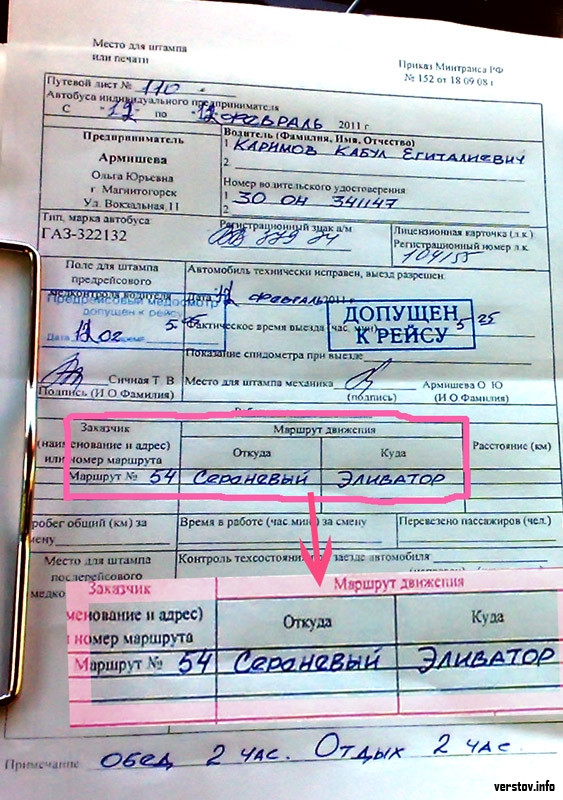 Место для штампа
или печати
Приказ Минтранса РФ
№ 152 от 18 09 08 г
Путевой лист № 110
Автобуса индивидуального предпринимателя
С "12" по "12" февраль 2011 г
Предприниматель
Армишева
Ольга Юрьевна
г Магнитогорск
Ул. Вокзальная 11
Водитель (Фамилия, Имя, Отчество)
1 Каримов Кабул Егиталиевич
2
Номер водительского удостоверения:
1 30 04 341147
2
Тип, марка автобуса
ГАЗ-322132
Регистрационный знак а/м
Лицензионная карточка (л.к.)
Регистрационный номер л.к
104155
Поле для штампа
предрейсового
медконтроля водителя
Предрейсовый медосмотр
допущен к рейсу
Дата 12 02 время 5
Автомобиль технически исправен, выезд разрешен
Дата 12 февраль 2011 г
ДОПУЩЕН
К РЕЙСУ
Фактическое время выезда (час, мин) 5 25
Показание спидометра при выезде
Сичная Т В
Подпись (И О Фамилия)
Место для штампа механика
(подпись)
Армишева О Ю
(И О Фамилия)
Заказчик
(наименование и адрес)
или номер маршрута
Маршрут движения
Откуда
Куда
Расстояние (км)
Маршрут № 54 Сераневый Эливатор
робег общий (км) за
мену
Время в работе (час.мин) за смену
Перевезено пассажиров (чел.)
Место для штампа
послерейсового
медко
Контроль техсостояния заезде автомобиля
Заказчик
менование и адрес)
номер маршрута
Маршрут движения
Откуда
Куда
Маршрут № 54 Сераневый Эливатор
Примечание обед 2 час. Отдых 2 час.
verstov.info